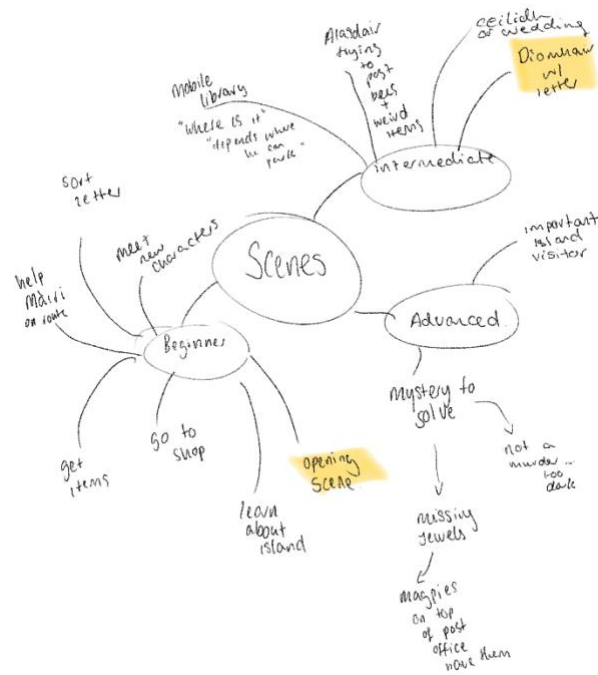 Scenes
Intermediate
Mobile
library
"where is it"
"depends where
he can
park"
Alasdair
trying
to
post
bees
+
weird
items
ceilidh
or wedding
w/
letter
Advanced.
important
island
visitor
mystery to
solve
not a
murder...
too
dark
missing
jewels
magpies
on top
of post
office
have them
Beginner
meet
new
characters
sort
letter
help
Màiri
on route
get
items
go to
shop
learn
about
island
opening
scene